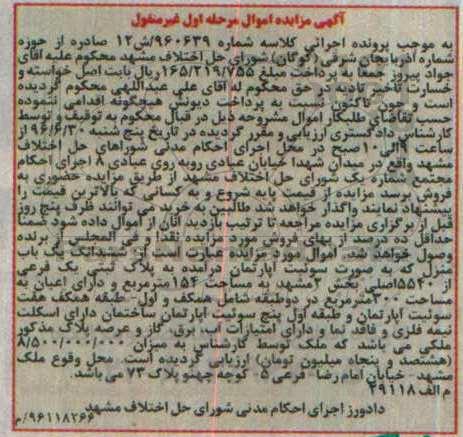 آگهی مزایده اموال مرحله اول غیرمنقول
به موجب پرونده اجرائی کلاسه شماره ۹۶۰۶۳۹/ش۱۲ صادره از حوزه
شماره آذربایجان شرقی (گوگان) شورای حل اختلاف مشهد محکوم علیه آقای
جواد پیروز جمعا به پرداخت مبلغ ۱۶۵/۲۱۹/۷۵۵ ریال بابت اصل خواسته و
خسارت تاخیر تادیه در حق محکوم له آقای علی عبداللهی محکوم گردیده
است و چون تاکنون نسبت به پرداخت دیونش هیچگونه اقدامی ننموده
حسب تقاضای طلبکار اموال مشروحه ذیل در قبال محکوم به توقیف و توسط
کارشناس دادگستری ارزیابی و مقرر گردیده در تاریخ پنج شنبه ۹۶/۶/۳۰ از
ساعت ۹ الی ۱۰ صبح در محل اجرای احکام مدنی شوراهای حل اختلاف
مشهد واقع در میدان شهدا خیابان عبادی روبه روی عبادی ۸ اجرای احکام
مجتمع شماره یک شورای حل اختلاف مشهد از طریق مزایده حضوری به
فروش برسد مزایده از قیمت پایه شروع و به کسانی که بالاترین قیمت را
پیشنهاد نمایند واگذار خواهد شد طالبین به خرید می توانند ظرف پنج روز
قبل از برگزاری مزایده مراجعه تا ترتیب بازدید آنان از اموال داده شود ضمنا
حداقل ده درصد از بهای فروش مورد مزایده نقدا و فی المجلس از برنده
وصول خواهد شد. اموال مورد مزایده عبارت است از: ششدانگ یک باب
منزل که به صورت سوئیت آپارتمان درآمده به پلاک ثبتی یک فرعی
از ۵۵۴۰ اصلی بخش ۲ مشهد به مساحت ۱۵۴ مترمربع و دارای اعیان به
مساحت ۳۰۰ مترمربع در دوطبقه شامل همکف و اول- طبقه همکف هفت
سوئیت آپارتمان و طبقه اول پنج سوئیت آپارتمان ساختمان دارای اسکلت
نیمه فلزی و فاقد نما و دارای امتیازات آب، برق، گاز و عرصه پلاک مذکور
ملکی می باشد که ملک توسط کارشناس به میزان ۸/۵۰۰/۰۰۰/۰۰۰
(هشتصد و پنجاه میلیون تومان) ارزیابی گردیده است. محل وقوع ملک
مشهد- خیابان امام رضا- فرعی ۵- کوچه چهنو پلاک ۷۳ می باشد.
م الف ۲۹۱۱۸
دادورز اجرای احکام مدنی شورای حل اختلاف مشهد
۹۶۱۱۸۲۶۶/م